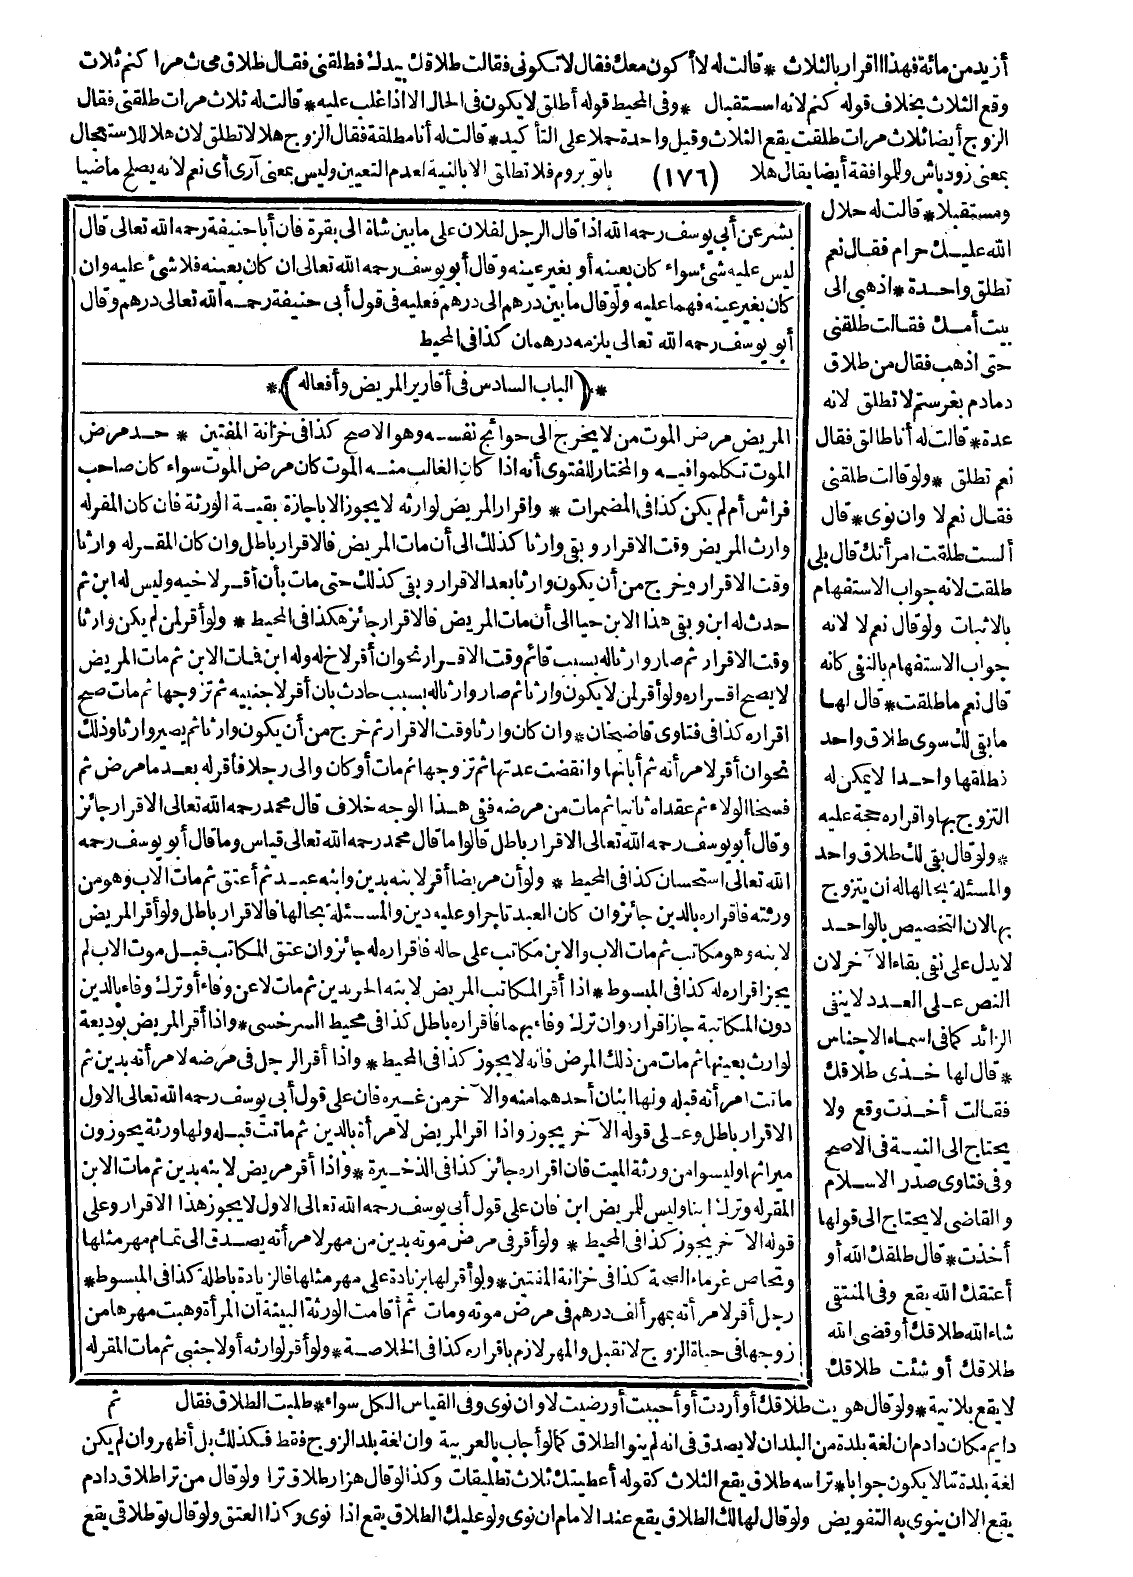 أزيد من مائة فهذا اقرار بالثلاث * قالت له لا أكون معك فقال لا تكوني فقالت طلاقك بيدك فطلقني فقال طلاق مى ث مرا كنم ثلاث
وقع الثلاث بخلاف قوله كنم لانه استقبال * وفى المحيط قوله أطلق لا يكون فى الحال الا اذا غلب عليه * قالت له ثلاث مرات طلقنى فقال
الزوج أيضا ثلاث مرات طلقت يقع الثلاث وقيل واحدة حملا على التأكيد * قالت له أنا مطلقة فقال الزوج هلا لا تطلق لان هلا للاستعجال
بمعنى زود باش وللموافقة أيضا يقال هلا (١٧٦) باتو بروم فلا تطلق الا بالنية لعدم التعيين وليس بمعنى آرى أى نعم لانه يصلح ماضيا
ومستقبلا * قالت له حلال
الله عليك حرام فقال نعم
تطلق واحدة * اذهبى الى
بيت أمك فقالت طلقنى
حتى اذهب فقال من طلاق
دمادم بفرستم لا تطلق لانه
عدة * قالت له أنا طالق فقال
نعم تطلق * ولو قالت طلقنى
فقال نعم لا وان نوى * قال
ألست طلقت امرأتك قال بلى
طلقت لانه جواب الاستفهام
بالاثبات ولو قال نعم لا لانه
جواب الاستفهام بالنفى كانه
قال نعم ما طلقت * قال لها
ما بقى لك سوى طلاق واحد
فطلقها واحدا لا يمكن له
التزوج بها واقراره حجة عليه
* ولو قال بقى لك طلاق واحد
والمسئلة بحالها له ان يتزوج
بها لان التخصيص بالواحد
لا يدل على نفى بقاء الآخر لان
النص على العدد لا ينفى
الزائد كما فى اسماء الاجناس
* قال لها خذى طلاقك
فقالت أخذت وقع ولا
يحتاج الى النية فى الاصح
وفى فتاوى صدر الاسلام
والقاضى لا يحتاج الى قولها
أخذت * قال طلقك الله أو
أعتقك الله يقع وفى المنتقى
شاء الله طلاقك أو قضى الله
طلاقك أو شئت طلاقك
بشر عن أبى يوسف رحمه الله اذا قال الرجل لفلان على ما بين شاة الى بقرة فان أبا حنيفة رحمه الله تعالى قال
ليس عليه شئ سواء كان بعينه أو بغير عينه وقال أبو يوسف رحمه الله تعالى ان كان بعينه فلا شئ عليه وان
كان بغير عينه فهما عليه ولو قال ما بين درهم الى درهم فعليه فى قول أبى حنيفة رحمه الله تعالى درهم وقال
أبو يوسف رحمه الله تعالى يلزمه درهمان كذا فى المحيط
*(الباب السادس فى أقارير المريض وأفعاله)*
المريض مرض الموت من لا يخرج الى حوائج نفسه وهو الاصح كذا فى خزانة المفتين * حد مرض
الموت تكلموا فيه والمختار للفتوى أنه اذا كان الغالب منه الموت كان مرض الموت سواء كان صاحب
فراش أم لم يكن كذا فى المضمرات * واقرار المريض لوارثه لا يجوز الا باجازة بقية الورثة فان كان المقر له
وارث المريض وقت الاقرار وبقى وارثا كذلك الى أن مات المريض فالاقرار باطل وان كان المقر له وارثا
وقت الاقرار وخرج من أن يكون وارثا بعد الاقرار وبقى كذلك حتى مات بأن أقر لاخيه وليس له ابن ثم
حدث له ابن وبقى هذا الابن حيا الى أن مات المريض فالاقرار جائز هكذا فى المحيط * ولو أقر لمن لم يكن وارثا
وقت الاقرار ثم صار وارثا له بسبب قائم وقت الاقرار نحو ان أقر لاخ له وله ابن فمات الابن ثم مات المريض
لا يصح اقراره ولو أقر لمن لا يكون وارثا ثم صار وارثا له بسبب حادث بان أقر لاجنبيه ثم تزوجها ثم مات صح
اقراره كذا فى فتاوى قاضيخان * وان كان وارثا وقت الاقرار ثم خرج من أن يكون وارثا ثم يصير وارثا وذلك
نحو ان أقر لامرأته ثم أبانها وانقضت عدتها ثم تزوجها ثم مات أو كان والى رجلا فأقر له بعد ما مرض ثم
فسخا الولاء ثم عقداه ثانيا ثم مات من مرضه ففى هذا الوجه خلاف قال محمد رحمه الله تعالى الاقرار جائز
وقال أبو يوسف رحمه الله تعالى الاقرار باطل قالوا ما قال محمد رحمه الله تعالى قياس وما قال أبو يوسف رحمه
الله تعالى استحسان كذا فى المحيط * ولو أن مريضا أقر لابنه بدين وابنه عبد ثم أعتق ثم مات الاب وهو من
ورثته فاقراره بالدين جائز وان كان العبد تاجرا وعليه دين والمسئلة بحالها فالاقرار باطل ولو أقر المريض
لابنه وهو مكاتب ثم مات الاب والابن مكاتب على حاله فاقراره له جائز وان عتق المكاتب قبل موت الاب لم
يجز اقراره له كذا فى المبسوط * اذا أقر المكاتب المريض لابنه الحر بدين ثم مات لا عن وفاء أو ترك وفاء بالدين
دون المكاتبة جاز اقراره وان ترك وفاء بهما فاقراره باطل كذا فى محيط السرخسى * واذا أقر المريض بوديعة
لوارث بعينها ثم مات من ذلك المرض فانه لا يجوز كذا فى المحيط * واذا أقر الرجل فى مرضه لامرأته بدين ثم
ماتت امرأته قبله ولها ابنان أحدهما منه والآخر من غيره فان على قول أبى يوسف رحمه الله تعالى الاول
الاقرار باطل وعلى قوله الآخر يجوز واذا اقر المريض لامرأة بالدين ثم ماتت قبله ولها ورثة يحوزون
ميراثها وليسوا من ورثة الميت فان اقراره جائز كذا فى الذخيرة * واذا أقر مريض لابنه بدين ثم مات الابن
المقر له وترك ابنا وليس للمريض ابن فان على قول أبى يوسف رحمه الله تعالى الاول لا يجوز هذا الاقرار وعلى
قوله الآخر يجوز كذا فى المحيط * ولو أقر فى مرض موته بدين من مهر لامرأته يصدق الى تمام مهر مثلها
وتحاص غرماء الصحة كذا فى خزانة المفتين * ولو أقر لها بزيادة على مهر مثلها فالزيادة باطلة كذا فى المبسوط *
رجل أقر لامرأته بمهر ألف درهم فى مرض موته ومات ثم أقامت الورثة البينة ان المرأة وهبت مهرها من
زوجها فى حياة الزوج لا تقبل والمهر لازم باقراره كذا فى الخلاصة * ولو أقر لوارثه أو لاجنبى ثم مات المقر له
ثم
لا يقع بلا نية * ولو قال هويت طلاقك أو أردت أو أحببت أو رضيت لا وان نوى وفى القياس الكل سواء * طلبت الطلاق فقال
دايم مكان دادم ان لغة بلدة من البلدان لا يصدق فى انه لم ينو الطلاق كما لو أجاب بالعربية وان لغة بلد الزوج فقط فكذلك بل أظهر وان لم يكن
لغة بلدة تا لا يكون جوابا * تراسه طلاق يقع الثلاث كقوله أعطيتك ثلاث تطليقات وكذا لو قال هزار طلاق ترا ولو قال من ترا طلاق دادم
يقع الا ان ينوى به التفويض ولو قال لها لك الطلاق يقع عند الامام ان نوى ولو عليك الطلاق يقع اذا نوى وكذا العتق ولو قال تو طلاقى يقع